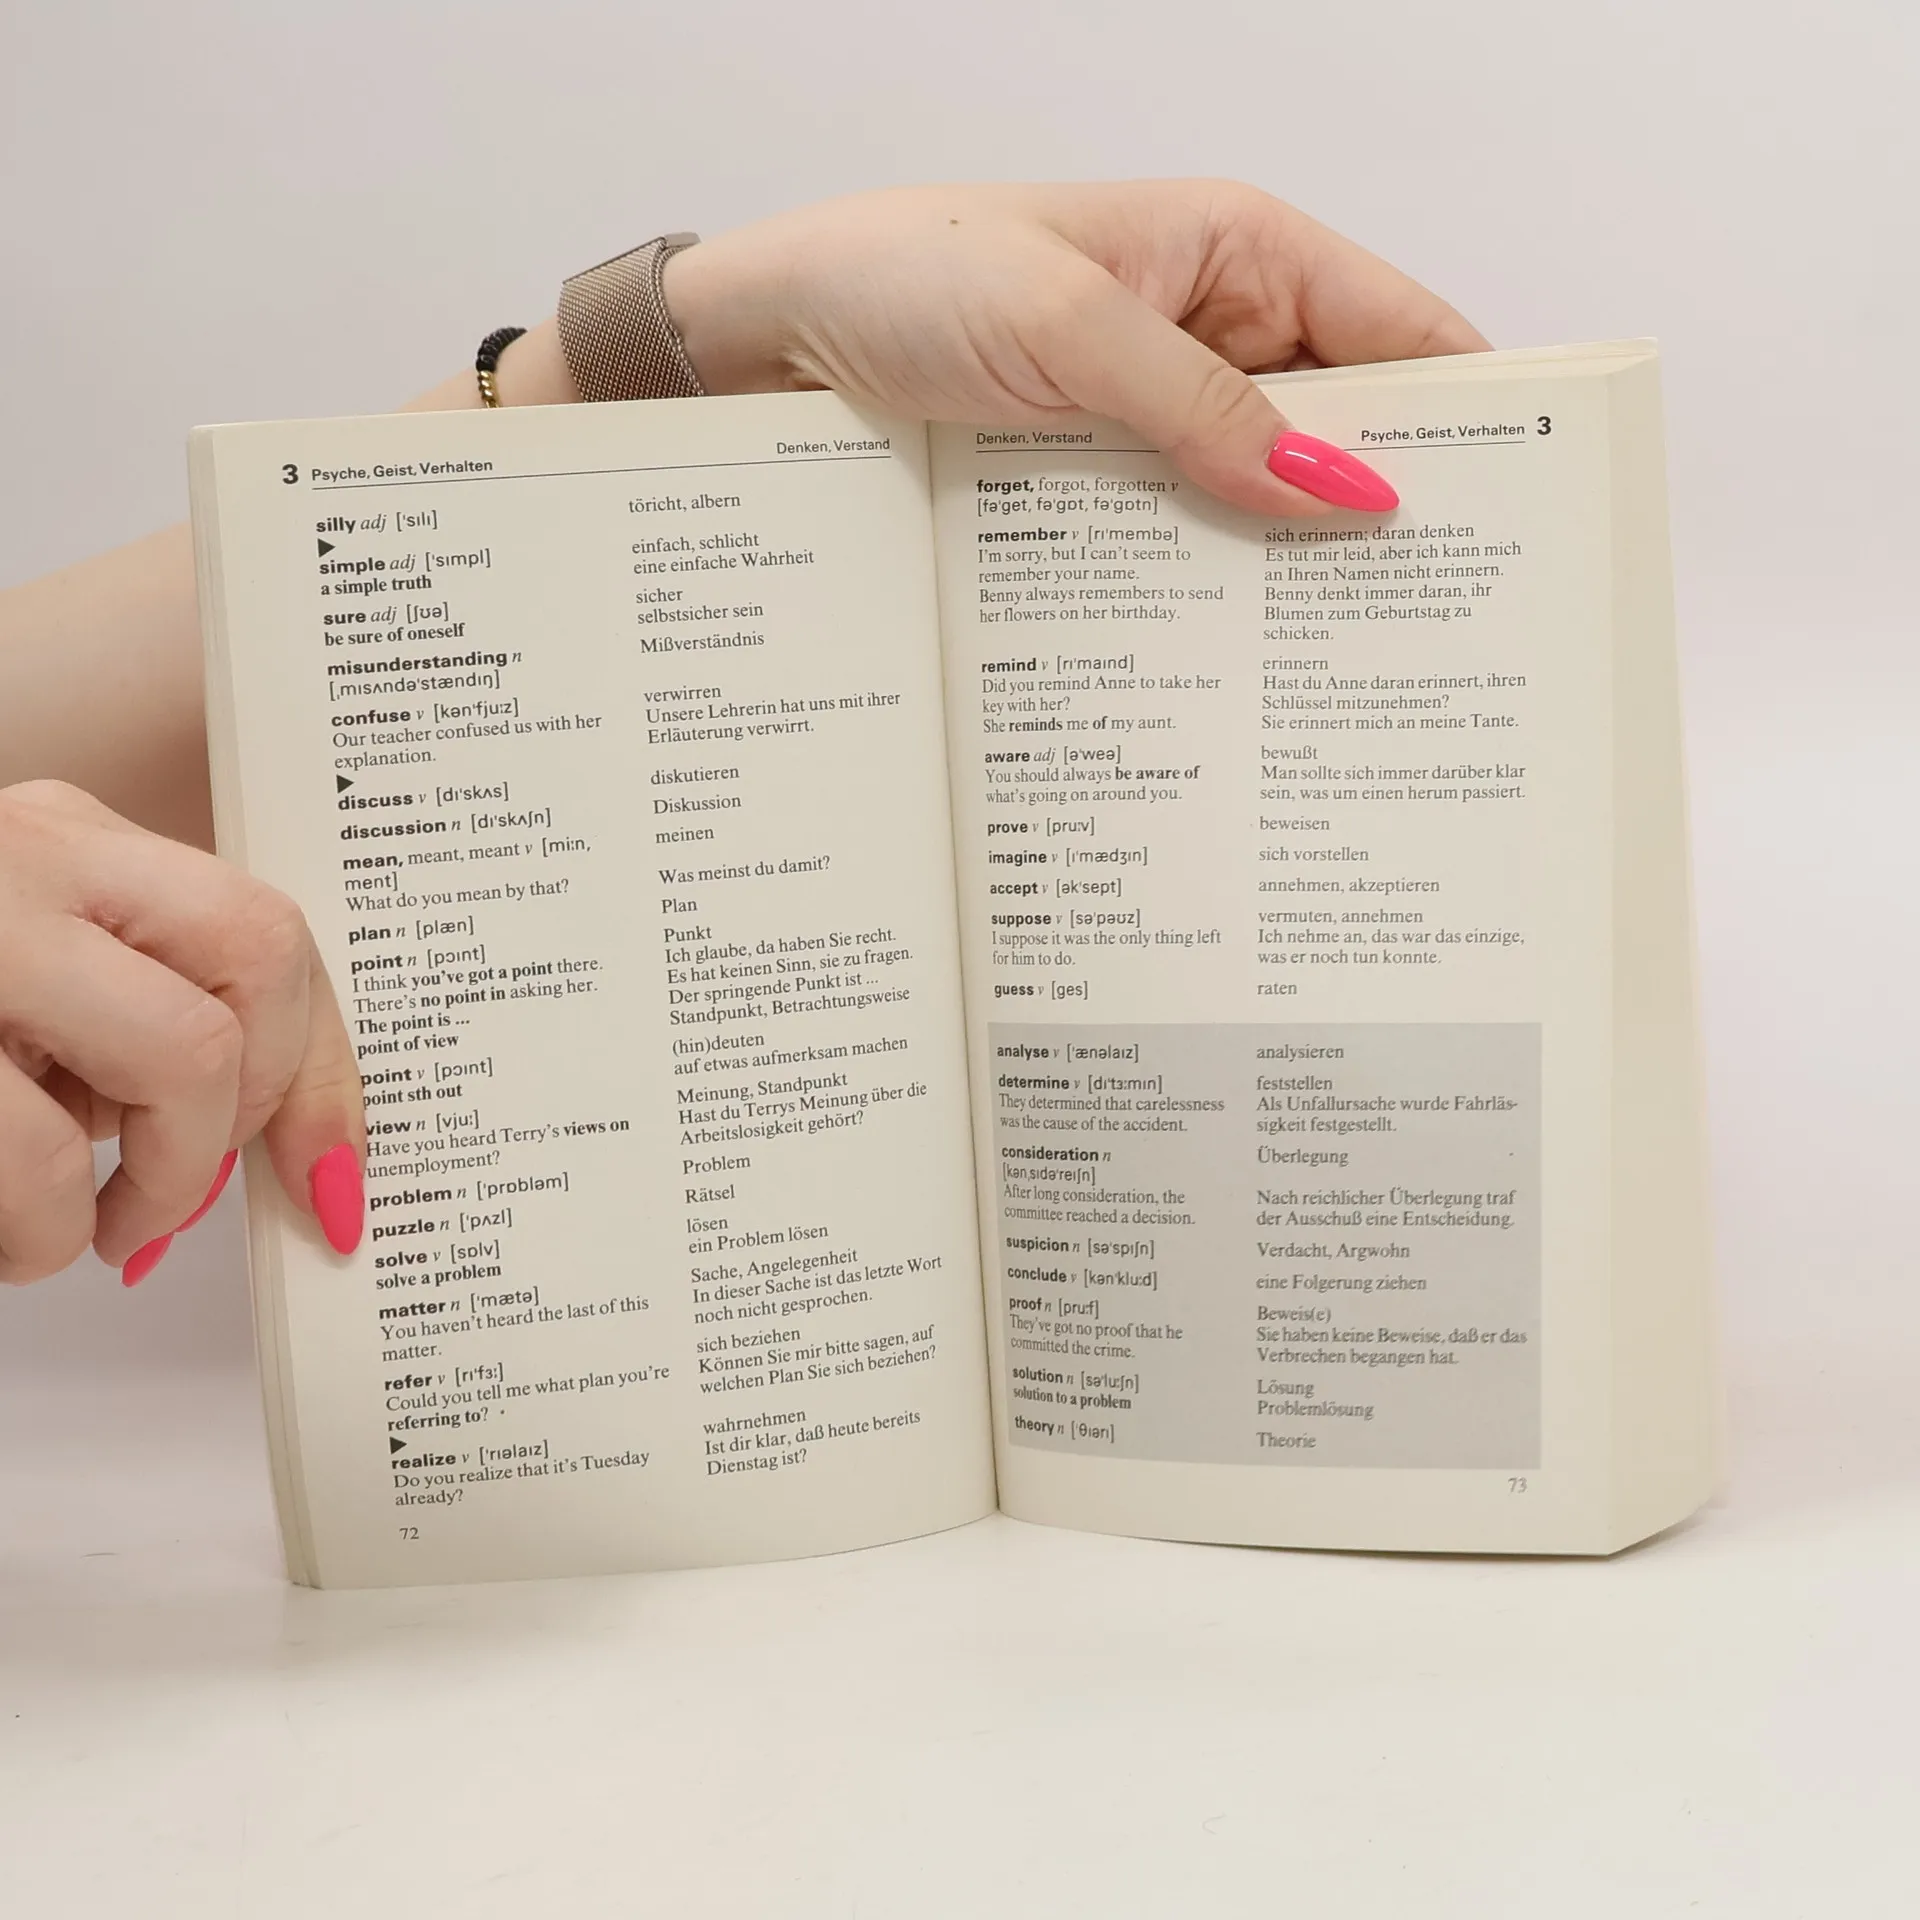 3 Psyche, Geist, Verhalten
Denken, Verstand
silly adj ['sılı]
töricht, albern
simple adj ['sımpl]
einfach, schlicht
a simple truth
eine einfache Wahrheit
sure adj [ʃʊə]
sicher
be sure of oneself
selbstsicher sein
misunderstanding n
Mißverständnis
[ˌmısʌndə'stændıŋ]
confuse v [kən'fju:z]
verwirren
Our teacher confused us with her
Unsere Lehrerin hat uns mit ihrer
explanation.
Erläuterung verwirrt.
discuss v [dı'skʌs]
diskutieren
discussion n [dı'skʌʃn]
Diskussion
mean, meant, meant v [mi:n,
meinen
ment]
What do you mean by that?
Was meinst du damit?
plan n [plæn]
Plan
point n [pɔınt]
Punkt
I think you've got a point there.
Ich glaube, da haben Sie recht.
There's no point in asking her.
Es hat keinen Sinn, sie zu fragen.
The point is ...
Der springende Punkt ist ...
point of view
Standpunkt, Betrachtungsweise
point v [pɔınt]
(hin)deuten
point sth out
auf etwas aufmerksam machen
view n [vju:]
Meinung, Standpunkt
Have you heard Terry's views on
Hast du Terrys Meinung über die
unemployment?
Arbeitslosigkeit gehört?
problem n ['prɒbləm]
Problem
puzzle n ['pʌzl]
Rätsel
solve v [sɒlv]
lösen
solve a problem
ein Problem lösen
matter n ['mætə]
Sache, Angelegenheit
You haven't heard the last of this
In dieser Sache ist das letzte Wort
matter.
noch nicht gesprochen.
refer v [rı'fɜ:]
sich beziehen
Could you tell me what plan you're
Können Sie mir bitte sagen, auf
referring to?
welchen Plan Sie sich beziehen?
realize v ['rıəlaız]
wahrnehmen
Do you realize that it's Tuesday
Ist dir klar, daß heute bereits
already?
Dienstag ist?
72
Denken, Verstand
Psyche, Geist, Verhalten 3
forget, forgot, forgotten v
[fə'get, fə'gɒt, fə'gɒtn]
remember v [rı'membə]
sich erinnern; daran denken
I'm sorry, but I can't seem to
Es tut mir leid, aber ich kann mich
remember your name.
an Ihren Namen nicht erinnern.
Benny always remembers to send
Benny denkt immer daran, ihr
her flowers on her birthday.
Blumen zum Geburtstag zu
schicken.
remind v [rı'maınd]
erinnern
Did you remind Anne to take her
Hast du Anne daran erinnert, ihren
key with her?
Schlüssel mitzunehmen?
She reminds me of my aunt.
Sie erinnert mich an meine Tante.
aware adj [ə'weə]
bewußt
You should always be aware of
Man sollte sich immer darüber klar
what's going on around you.
sein, was um einen herum passiert.
prove v [pru:v]
beweisen
imagine v [ı'mædʒın]
sich vorstellen
accept v [ək'sept]
annehmen, akzeptieren
suppose v [sə'pəʊz]
vermuten, annehmen
I suppose it was the only thing left
Ich nehme an, das war das einzige,
for him to do.
was er noch tun konnte.
guess v [ges]
raten
analyse v ['ænəlaız]
analysieren
determine v [dı'tɜ:mın]
feststellen
They determined that carelessness
Als Unfallursache wurde Fahrläs-
was the cause of the accident.
sigkeit festgestellt.
consideration n
Überlegung
[kənˌsıdə'reıʃn]
After long consideration, the
Nach reichlicher Überlegung traf
committee reached a decision.
der Ausschuß eine Entscheidung.
suspicion n [sə'spıʃn]
Verdacht, Argwohn
conclude v [kən'klu:d]
eine Folgerung ziehen
proof n [pru:f]
Beweis(e)
They've got no proof that he
Sie haben keine Beweise, daß er das
committed the crime.
Verbrechen begangen hat.
solution n [sə'lu:ʃn]
Lösung
solution to a problem
Problemlösung
theory n ['θıərı]
Theorie
73